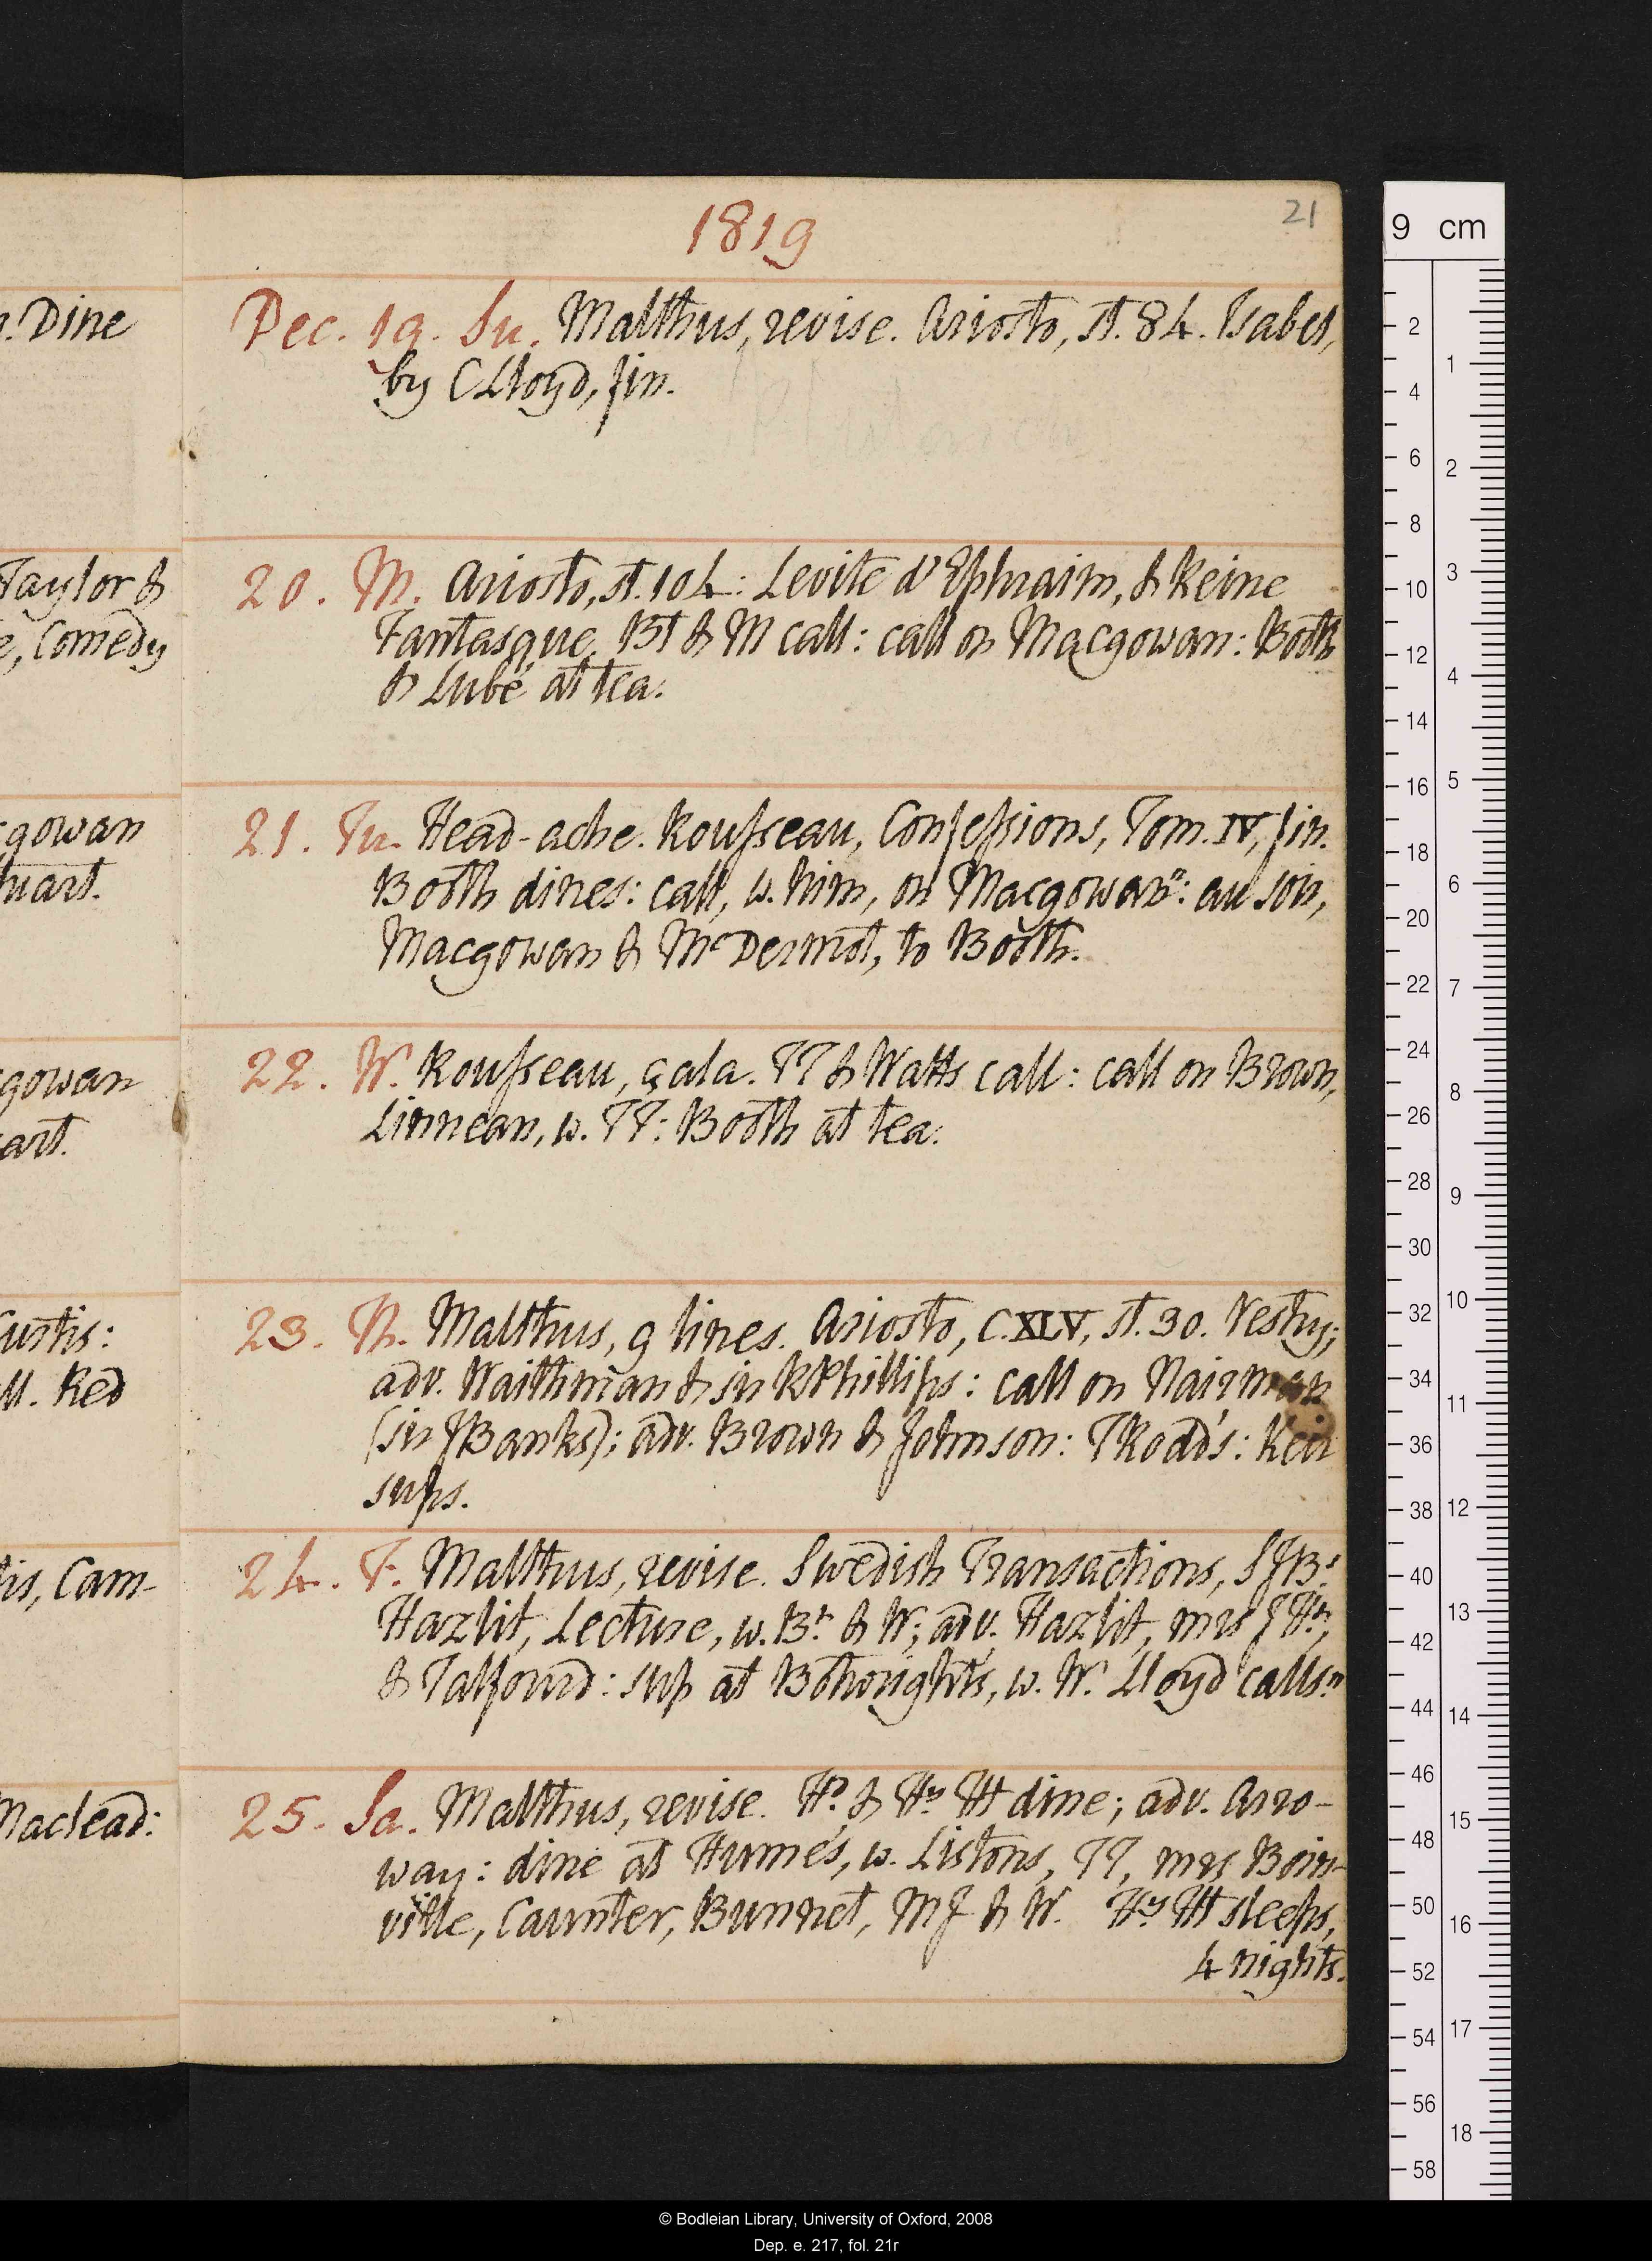 1819
21
Dec. 19. Su. Malthus, revise. Ariosto, st. 84. Isabel,
by C Lloyd, fin.
20. M. Ariosto, st. 104: Levite d'Ephraim, & Reine
Fantasque. BT & M call: call on Macgowan: Booth
& Lubé at tea.
21. Tu. Head-ache. Rousseau, Confessions, Tom. IV, fin.
Booth dines: call, w. him, on Macgowan n: au soir,
Macgowan & McDermot, to Booth.
22. W. Rousseau, çala. TT & Watts call: call on Brown,
Linnean, w. TT: Booth at tea.
23. Th. Malthus, 9 lines. Ariosto, C. XLV, st. 30. Vestry;
adv. Waithman & sir R Phillips: call on Nairman
(sir J Banks); adv. Brown & Johnson: T Road's: Keir
sups.
24. F. Malthus, revise. Swedish Transactions, SJB's.
Hazlit, Lecture, w. Bt & W; adv. Hazlit, mrs J Ht,
& Talfourd: sup at Bthwright's, w. W. Lloyd calls n
25. Sa. Malthus, revise. Hd & Hy Ht dine; adv. Arro-
way: dine at Hume's, w. Listons, TT, mrs Boin-
ville, Caunter, Bunnet, MJ & W. Hy Ht sleeps,
4 nights.
. Dine
Taylor &
, Comedy
gowan
uart.
gowan
art.
Curtis:
ll. Red
is, Cam-
Maclead:
9 cm
2
4
6
8
10
12
14
16
18
20
22
24
26
28
30
32
34
36
38
40
42
44
46
48
50
52
54
56
58
1
2
3
4
5
6
7
8
9
10
11
12
13
14
15
16
17
18
© Bodleian Library, University of Oxford, 2008
Dep. e. 217, fol. 21r